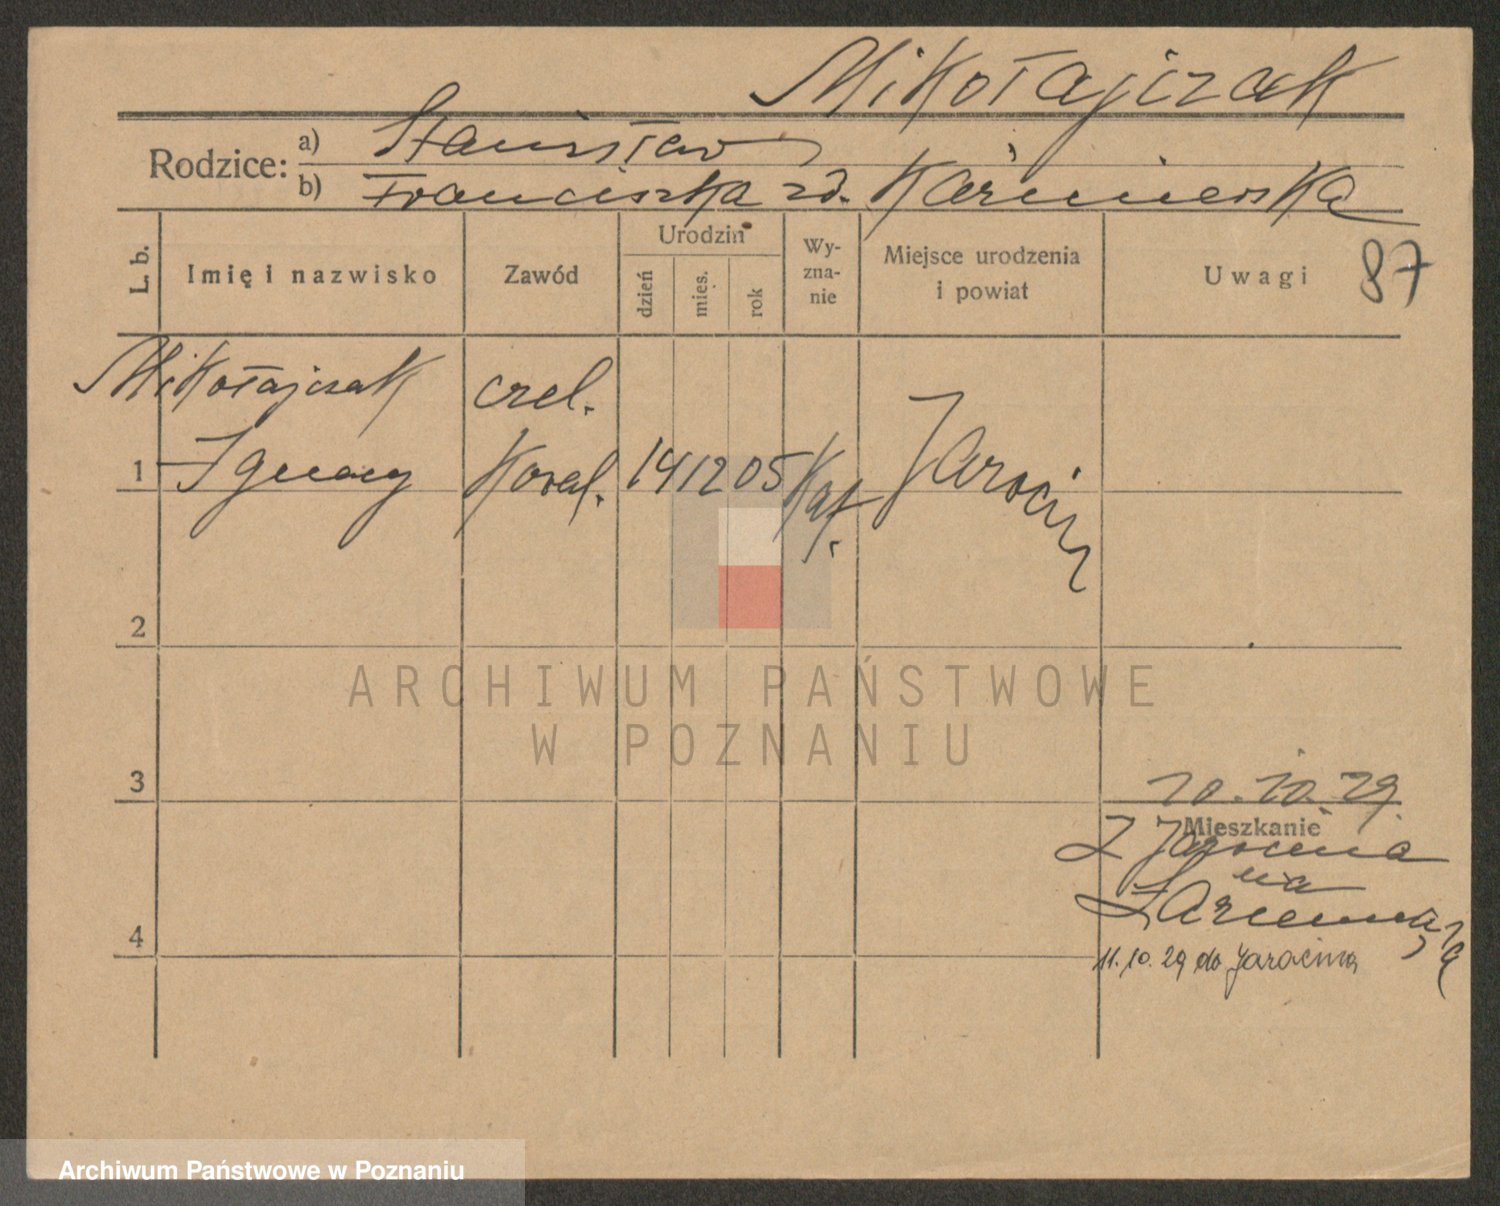 Mikołajczak
Rodzice: a) Stanisław
b) Franciszka zd. Kaźmierska
L. b. Imię i nazwisko Zawód Urodzin dzień mies. rok Wyznanie Miejsce urodzenia i powiat Uwagi 87
Mikołajczak czel.
1 Ignacy Kowal. 14 12 05 Kat. Jarocin
2
ARCHIWUM PAŃSTWOWE
W POZNANIU
3
10.10.29.
Mieszkanie
Z Jarocina
na
4
11.10.29 do Jarocina
Archiwum Państwowe w Poznaniu